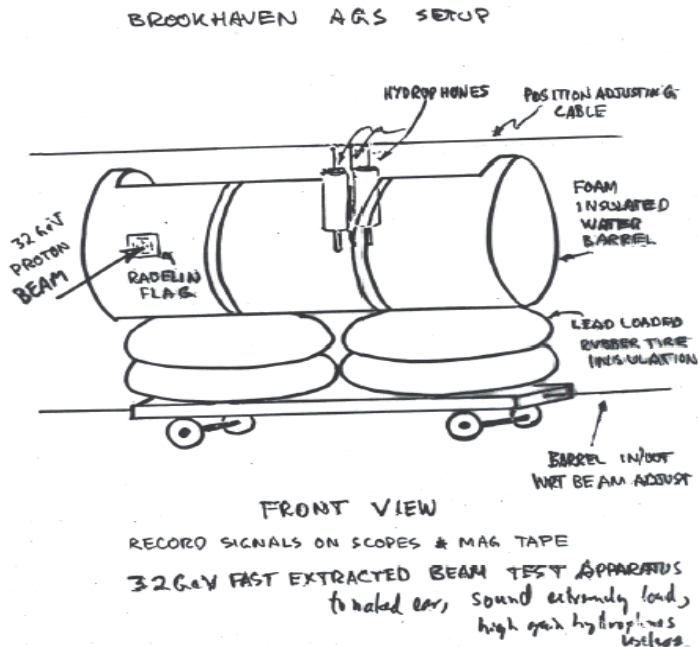 BROOKHAVEN AGS SETUP
HYDROPHONES
POSITION ADJUSTING
CABLE
FOAM
INSULATED
WATER
BARREL
32 GeV
PROTON
BEAM
RADELIN
FLAG
LEAD LOADED
RUBBER TIRE
INSULATION
BARREL IN/OUT
WRT BEAM ADJUST
FRONT VIEW
RECORD SIGNALS ON SCOPES & MAG TAPE
32 GeV FAST EXTRACTED BEAM TEST APPARATUS
to naked ear, sound extremely loud,
high gain hydrophones
useless